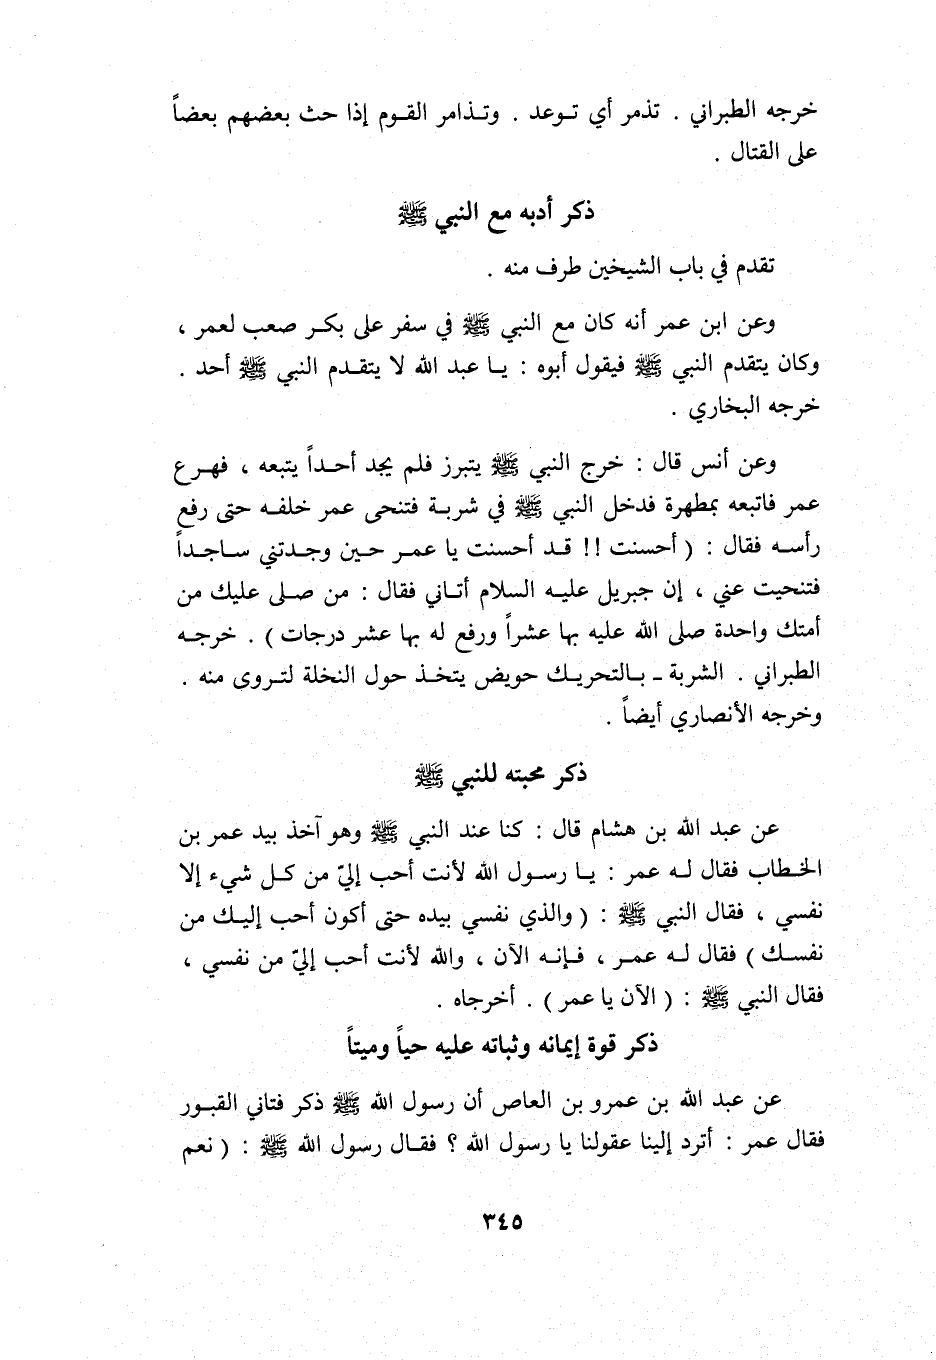 خرجه الطبراني . تذمر أي توعد . وتذامر القوم إذا حث بعضهم بعضاً
على القتال .
ذكر أدبه مع النبي ﷺ
تقدم في باب الشيخين طرف منه .
وعن ابن عمر أنه كان مع النبي ﷺ في سفر على بكر صعب لعمر ،
وكان يتقدم النبي ﷺ فيقول أبوه : يا عبد الله لا يتقدم النبي ﷺ أحد .
خرجه البخاري .
وعن أنس قال : خرج النبي ﷺ يتبرز فلم يجد أحداً يتبعه ، فهرع
عمر فاتبعه بمطهرة فدخل النبي ﷺ في شربة فتنحى عمر خلفه حتى رفع
رأسه فقال : ( أحسنت !! قد أحسنت يا عمر حين وجدتني ساجداً
فتنحيت عني ، إن جبريل عليه السلام أتاني فقال : من صلى عليك من
أمتك واحدة صلى الله عليه بها عشراً ورفع له بها عشر درجات ) . خرجه
الطبراني . الشربة ـ بالتحريك حويض يتخذ حول النخلة لتروى منه .
وخرجه الأنصاري أيضاً .
ذكر محبته للنبي ﷺ
عن عبد الله بن هشام قال : كنا عند النبي ﷺ وهو آخذ بيد عمر بن
الخطاب فقال له عمر : يا رسول الله لأنت أحب إليّ من كل شيء إلا
نفسي ، فقال النبي ﷺ : ( والذي نفسي بيده حتى أكون أحب إليك من
نفسك ) فقال له عمر ، فإنه الآن ، والله لأنت أحب إليّ من نفسي ،
فقال النبي ﷺ : ( الآن يا عمر ) . أخرجاه .
ذكر قوة إيمانه وثباته عليه حياً وميتاً
عن عبد الله بن عمرو بن العاص أن رسول الله ﷺ ذكر فتاني القبور
فقال عمر : أترد إلينا عقولنا يا رسول الله ؟ فقال رسول الله ﷺ : ( نعم
٣٤٥